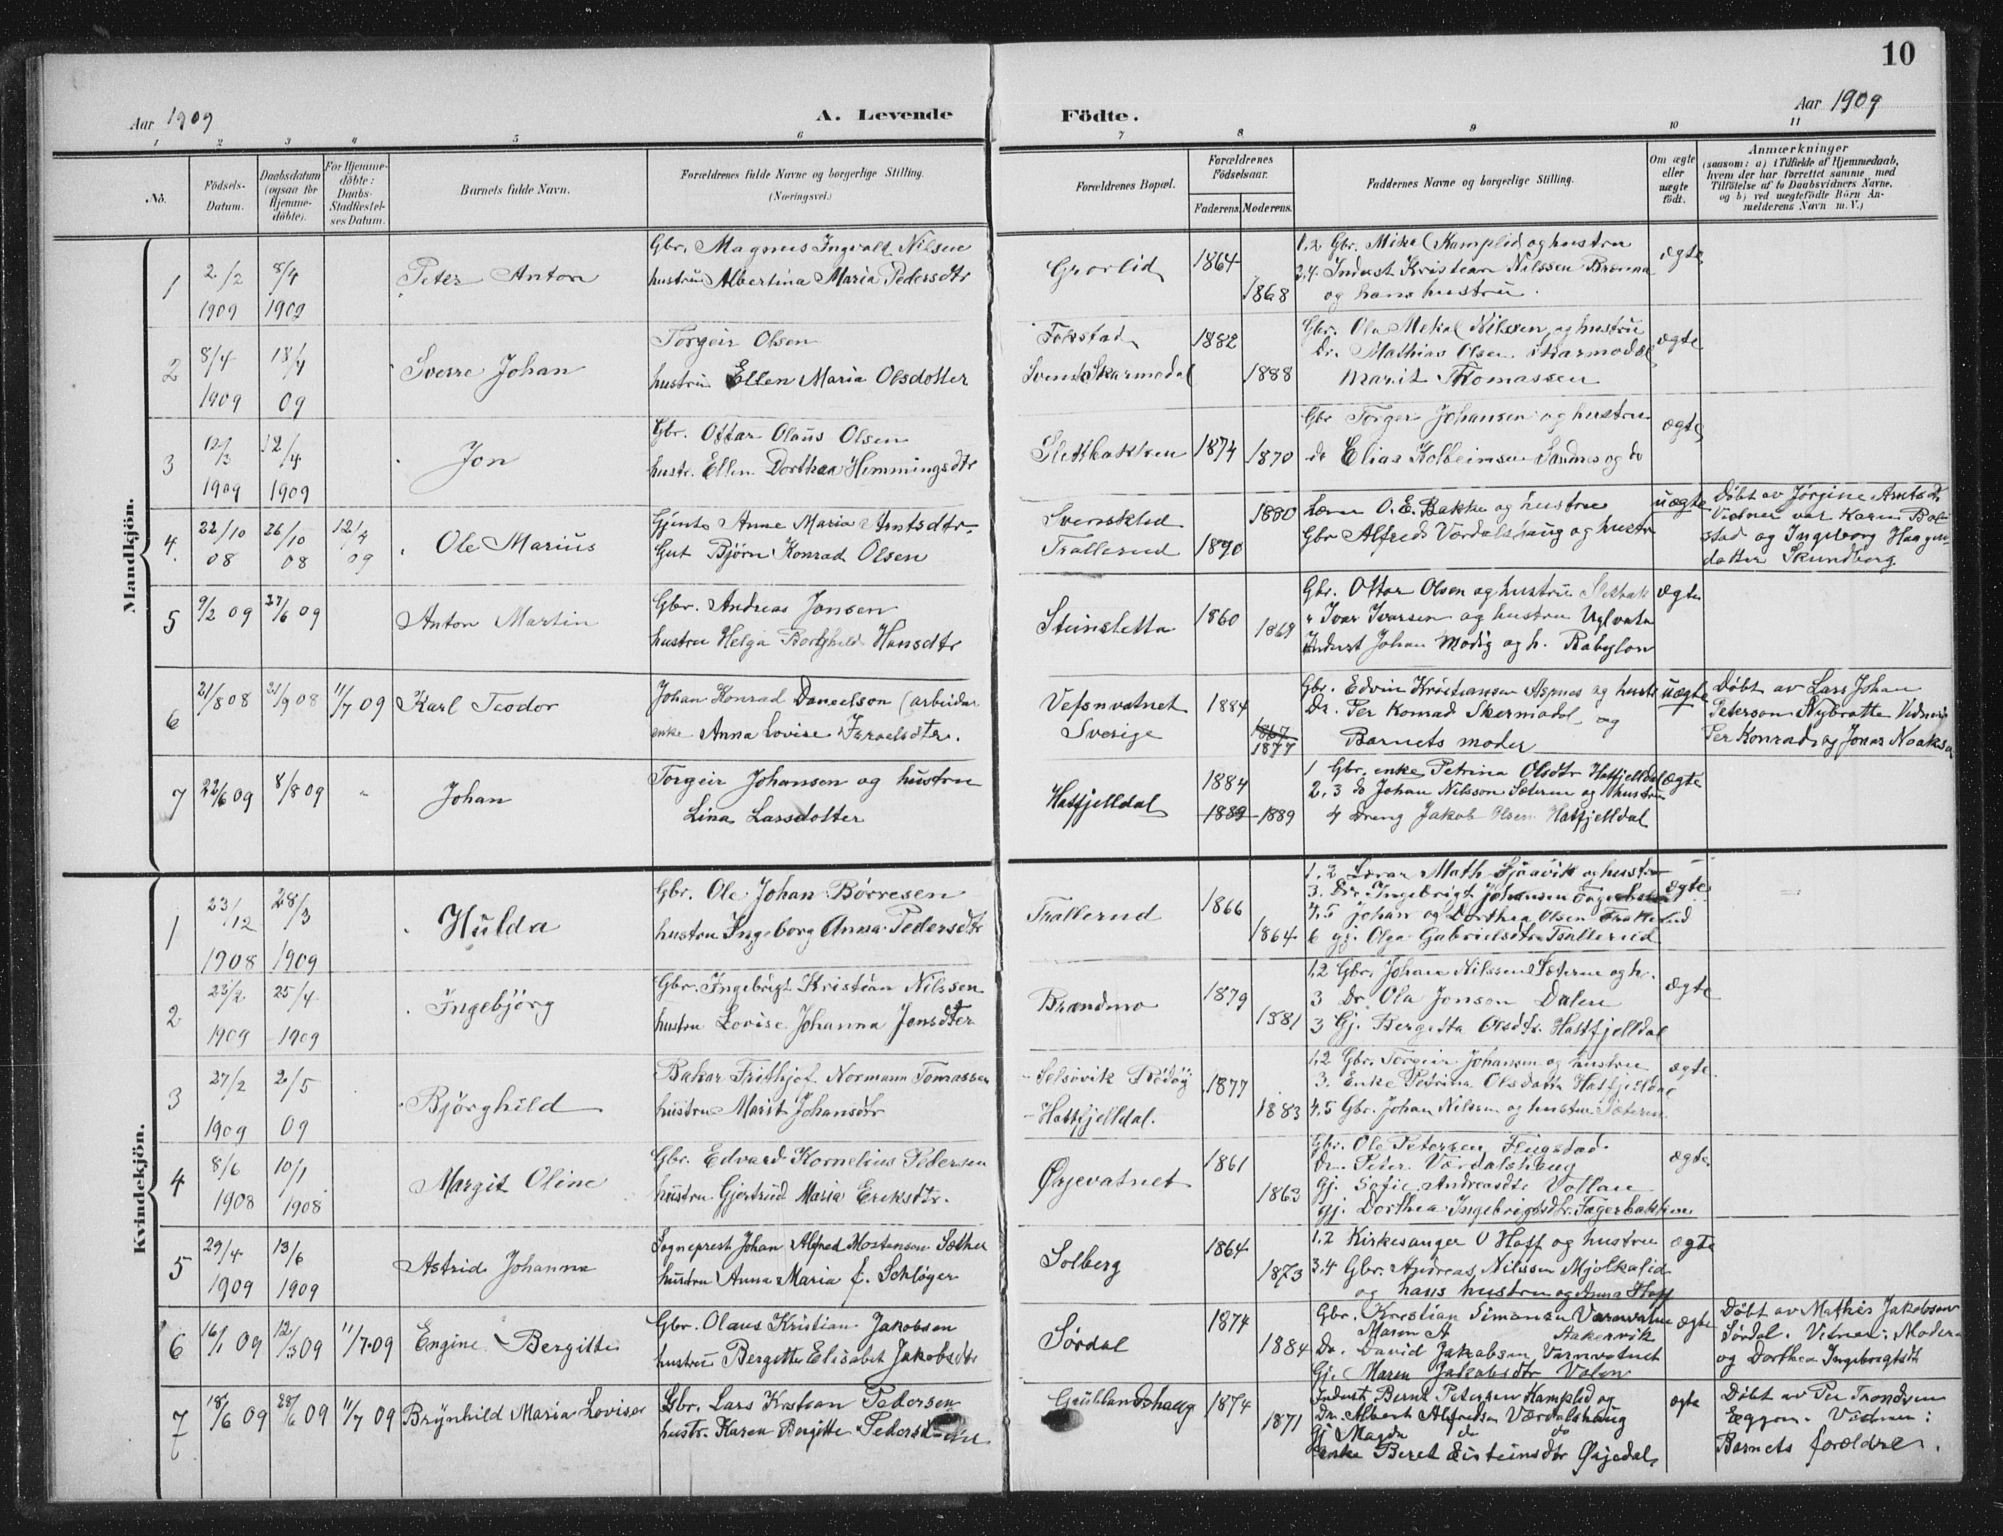 10
Aar 1909
A. Levende Födte.
Aar 1909
1 2 3 4 5 6 7 8 9 10 11
No.
Födsels-Datum.
Daabsdatum (ogsaa for Hjemme-döbte).
For Hjemme-döbte: Daabs-Stadfæstel-ses Datum.
Barnets fulde Navn.
Forældrenes fulde Navne og borgerlige Stilling.
(Næringsvei.)
Forældrenes Bopæl.
Forældrenes Födselsaar.
Faderens. Moderens.
Faddernes Navne og borgerlige Stilling.
Om ægte eller uægte födt.
Anmærkninger
(saasom: a) i Tilfælde af Hjemmedaab, hvem der har forrettet samme, med Tilföielse af to Daabsvidners Navne, og b) ved uægtefödte Börn An-melderens Navn m. V.)
Mandkjön.
1 2/2 1909 8/4 1909 Peter Anton
Gbr. Magnus Ingvald Nilsen
hustru Albertina Maria Pedersdtr
Grorlid 1864 1868
1.2 Gbr. Mikal Kamplid og hustru
3.4. Inderst Kristian Nilssen Brenna
og hans hustru.
ægte
2 8/4 1909 18/4 09 Sverre Johan
Torgeir Olsen
hustru Ellen Maria Olsdotter
Svensk Skarmodal 1882 1888
Gbr. Ola Mekal Nilssen og hustru
Do. Mathias Olsen Skarmodal
Marit Thomassen
ægte
3 12/3 1909 12/4 1909 Jon
Gbr. Ottar Olaus Olsen
hustr. Ellen Dorthea Hemmingsdtr
1874 1870
Gbr Torger Johansen og hustru
do Elias Kolbeinsen Sandnes og do
ægte
4 22/10 08 26/10 08 12/4 09 Ole Marius
Gjente Anne Maria Arntsdtr
Gut Bjørn Konrad Olsen
Svensklid
Trallerud 1890 1880
Lærer O. E. Bakke og hustru
Gbr Alfred Vardalshaug og hustr
uægte
Døbt av Jørgine Arntsdtr
Vidner var Karen
og Ingeborg Haagen-
datter Skundberg
5 9/2 09 27/6 09 Anton Martin
Gbr. Andreas Jonsen
hustru Helga Borghild Hansdtr
Steinsletta 1860 1869
Gbr. Ottar Olsen og hustru Sletbak
" Ivar Ivarsen og hustru
Inderst Johan Modig og h. Babylon
ægte
6 21/8 08 21/9 08 11/7 09 Karl Teodor
Johan Konrad Danielson (arbeider
enke Anna Lovise Israelsdtr.
Vefsnvatnet
Sverige 1884 1867 1877
Gbr. Edvin Kristiansen Aspnes og hustr
Do. Per Konrad Skarmodal og
Barnets moder
uægte
Døbt av Lars Johan
Peterson Nybratte Vidner:
Per Konrad og Jonas Noakson
7 22/6 09 8/8 09 " Johan
Torgeir Johansen og hustru
Lina Larsdotter
Hatfjelldal 1884 1889 1889
1 Gbr. enke Petrina Olsdtr Hatfjelldal
2.3 do Johan Nilsson Sæteren og hustru
4 Dreng Jakob Olsen Hatfjelldal
ægte
Kvindekjön.
1 23/12 1908 28/3 1909 Hulda
Gbr. Ole Johan Børresen
hustru Ingeborg Anna Pedersdtr
Trallerud 1866 1864
1.2 Lærar Math. Sjøavik og hustru
3. Do. Ingebrigt Johansen Fagerbakken
4.5 Johan og Dorthea Olsen Trallerud
6 gj. Olga Gabrielsdtr Trallerud
ægte
2 23/2 1909 25/4 1909 Ingebjörg
Gbr. Ingebrigt Kristian Nilssen
hustru Lovise Johanna Jonsdtr
Brandmo 1879 1881
1.2 Gbr. Johan Nilssen Sæterne og h.
3 Do Ola Jonson Dalen
3 Gj. Bergitta Olsdtr. Hatfjelldal
ægte
3 27/2 1909 2/5 09 Bjørghild
Bakar Frithjof Normann Tomassen
hustru Marit Johansdtr
Selsövik Rödöy
Hatfjelldal. 1877 1883
1.2 Gbr. Torgeir Johansen og hustru
3. Enke Petrina Olsdatter Hatfjelldal
4.5 Gbr. Johan Nilsen og hustru Sæteren
ægte
4 8/6 1908 10/1 1908 Margit Oline
Gbr. Edvard Kornelius Pedersen
hustru Gjertrud Maria Eriksdtr.
Ørjevatnet 1861 1863
Gbr. Ole Petersen Flugstad.
Do. Peter Værdalshaug
Gj. Sofie Andreasdtr Vollan
gj. Dorthea Ingebrigtsdtr. Fagerbakken
ægte
5 29/4 1909 13/6 1909 Astrid Johanna
Sogneprest Johan Alfred Mortensen Sæther
hustru Anna Maria f. Schlöger
Solberg 1864 1873
1.2 Kirkesanger O Hoff og hustru
3.4 Gbr. Andreas Nilssen Mjølkalid
og hans hustru og Anna Hoff
ægte
6 16/1 09 12/3 09 11/7-09 Engine Bergitte
Gbr. Olaus Kristian Jakobsen
hustru Bergitte Elisabet Jakobsdtr
Sørdal 1874 1884
Gbr. Kristian Simonsen Varnvatne
Maren A Aakervik
Do. David Jakobsen Varnvatnet
Gj. Maren Jakobsdtr Valen
ægte
Døbt av Mathis Jakobsen
Sørdal. Vitner: Moderen
og Dorthea Ingebrigtsdtr
7 18/6 09 28/6 09 11/7 09 Brynhild Maria Lovise
Gbr. Lars Kristian Pedersen
hustr. Karen Bergitte Pedersd
Grublandshaug 1874 1871
Inderst Bernt Petersen Kamplid og
Do. Albert Alfredsen Værdalshaug
Gj Magda do do
enke Beret Eisteinsdtr Ørjedal.
ægte
Døbt av Per Trondsen
Æggen. Vidner:
Barnets forældre.